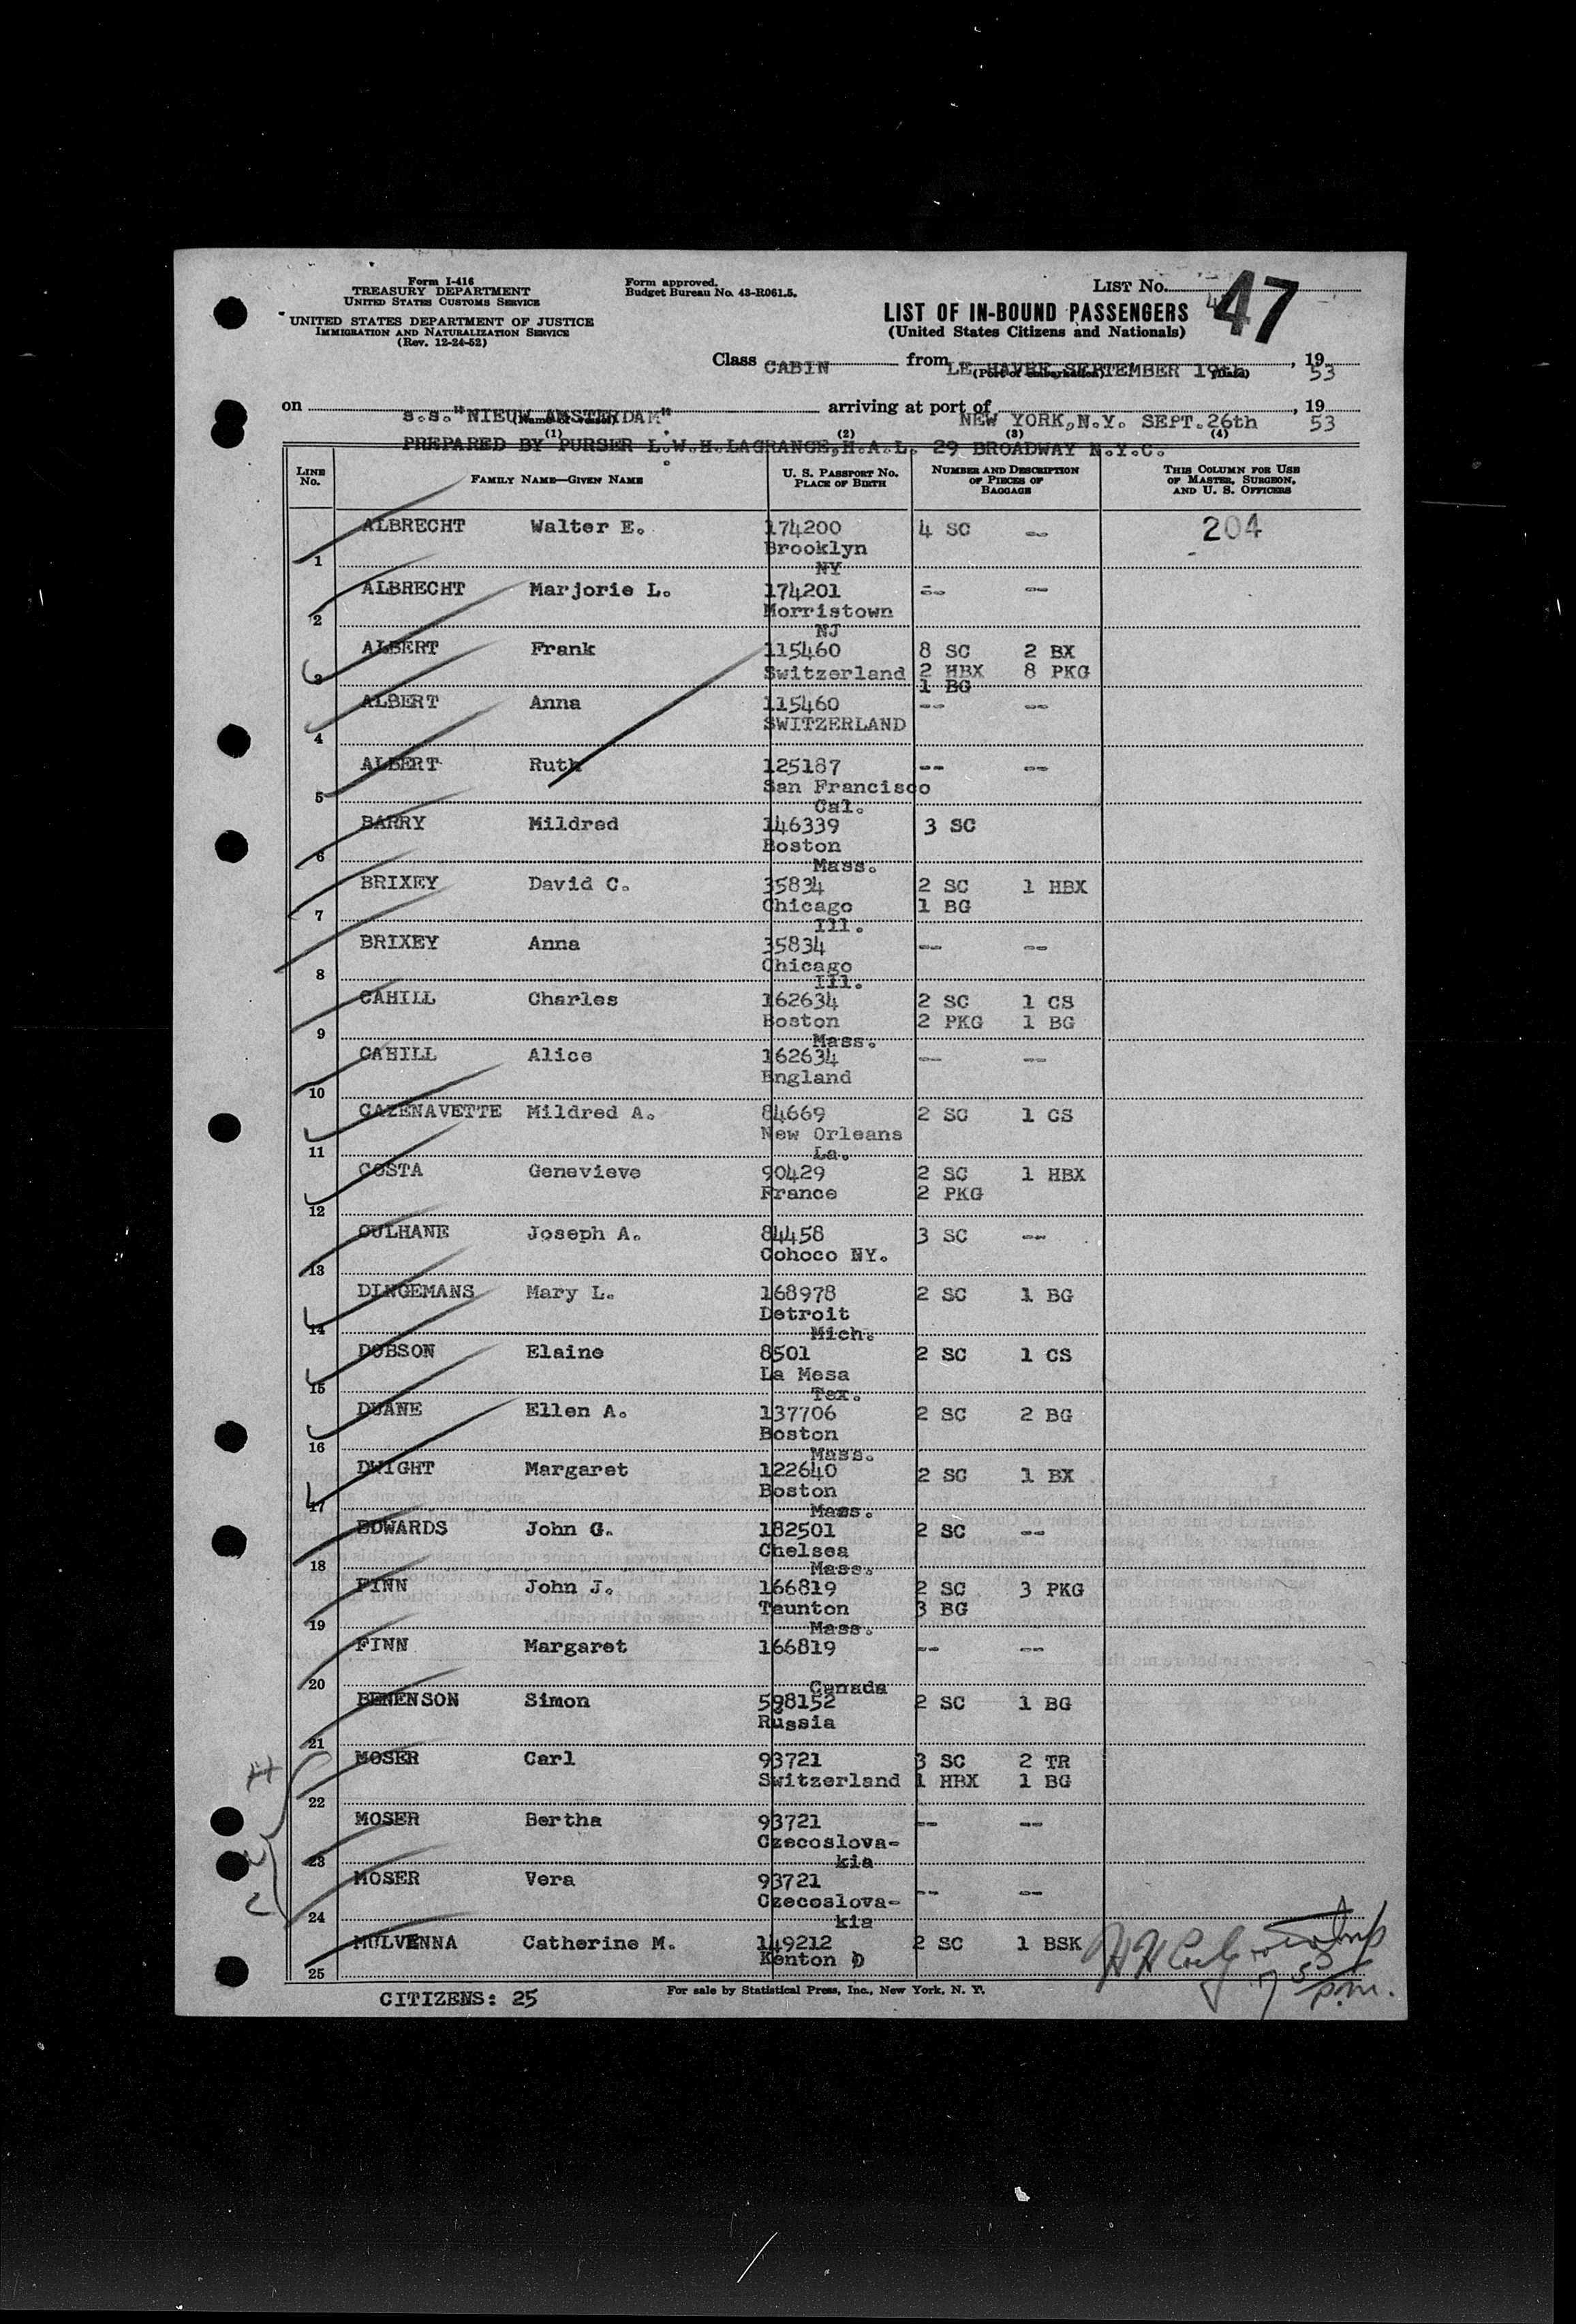 Form I-416
TREASURY DEPARTMENT
UNITED STATES CUSTOMS SERVICE
UNITED STATES DEPARTMENT OF JUSTICE
IMMIGRATION AND NATURALIZATION SERVICE
(Rev. 12-24-52)
Form approved.
Budget Bureau No. 43-R061.5.
LIST No. 47
LIST OF IN-BOUND PASSENGERS
(United States Citizens and Nationals)
Class CABIN from LE HAVRE SEPTEMBER 19th, 1953
(Port of embarkation) (Date)
on s.s."NIEUW AMSTERDAM" arriving at port of NEW YORK,N.Y. SEPT.26th, 1953
(Name of vessel)
(1) (2) (3) (4)
PREPARED BY PURSER L.W.H.LAGRANGE,H.A.L. 29 BROADWAY N.Y.C.
LINE No. FAMILY NAME—GIVEN NAME U. S. PASSPORT No. PLACE OF BIRTH NUMBER AND DESCRIPTION OF PIECES OF BAGGAGE THIS COLUMN FOR USE OF MASTER, SURGEON, AND U. S. OFFICERS
ALBRECHT Walter E. 174200 4 SC -- 204
Brooklyn
1 NY
ALBRECHT Marjorie L. 174201 -- --
Morristown
2 NJ
ALBERT Frank 115460 8 SC 2 BX
Switzerland 2 HBX 8 PKG
3 1 BG
ALBERT Anna 115460 -- --
SWITZERLAND
4
ALBERT Ruth 125187 -- --
San Francisco
5 Cal.
BARRY Mildred 146339 3 SC
Boston
6 Mass.
BRIXEY David C. 35834 2 SC 1 HBX
Chicago 1 BG
7 Ill.
BRIXEY Anna 35834 -- --
Chicago
8 Ill.
CAHILL Charles 162634 2 SC 1 CS
Boston 2 PKG 1 BG
9 Mass.
CAHILL Alice 162634 -- --
England
10
CAZENAVETTE Mildred A. 84669 2 SC 1 CS
New Orleans
11 La.
COSTA Genevieve 90429 2 SC 1 HBX
France 2 PKG
12
CULHANE Joseph A. 84458 3 SC --
Cohoco NY.
13
DINGEMANS Mary L. 168978 2 SC 1 BG
Detroit
14 Mich.
DOBSON Elaine 8501 2 SC 1 CS
La Mesa
15 Tex.
DUANE Ellen A. 137706 2 SC 2 BG
Boston
16 Mass.
DWIGHT Margaret 122640 2 SC 1 BX
Boston
17 Mass.
EDWARDS John G. 182501 2 SC --
Chelsea
18 Mass.
FINN John J. 166819 2 SC 3 PKG
Taunton 3 BG
19 Mass.
FINN Margaret 166819 -- --
20 Canada
BENENSON Simon 598152 2 SC 1 BG
Russia
21
MOSER Carl 93721 3 SC 2 TR
Switzerland 1 HBX 1 BG
22
MOSER Bertha 93721 -- --
Czecoslova-
23 kia
MOSER Vera 93721 -- --
Czecoslova-
24 kia
MULVENNA Catherine M. 149212 2 SC 1 BSK
Kenton O
25
7 55 p.m.
CITIZENS: 25
For sale by Statistical Press, Inc., New York, N. Y.